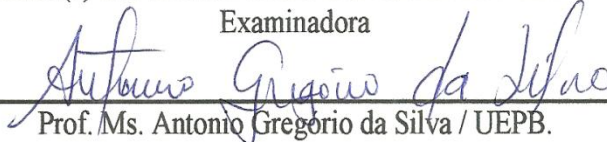 Examinadora
Antonio Gregório da Silva
Prof. Ms. Antonio Gregório da Silva / UEPB.